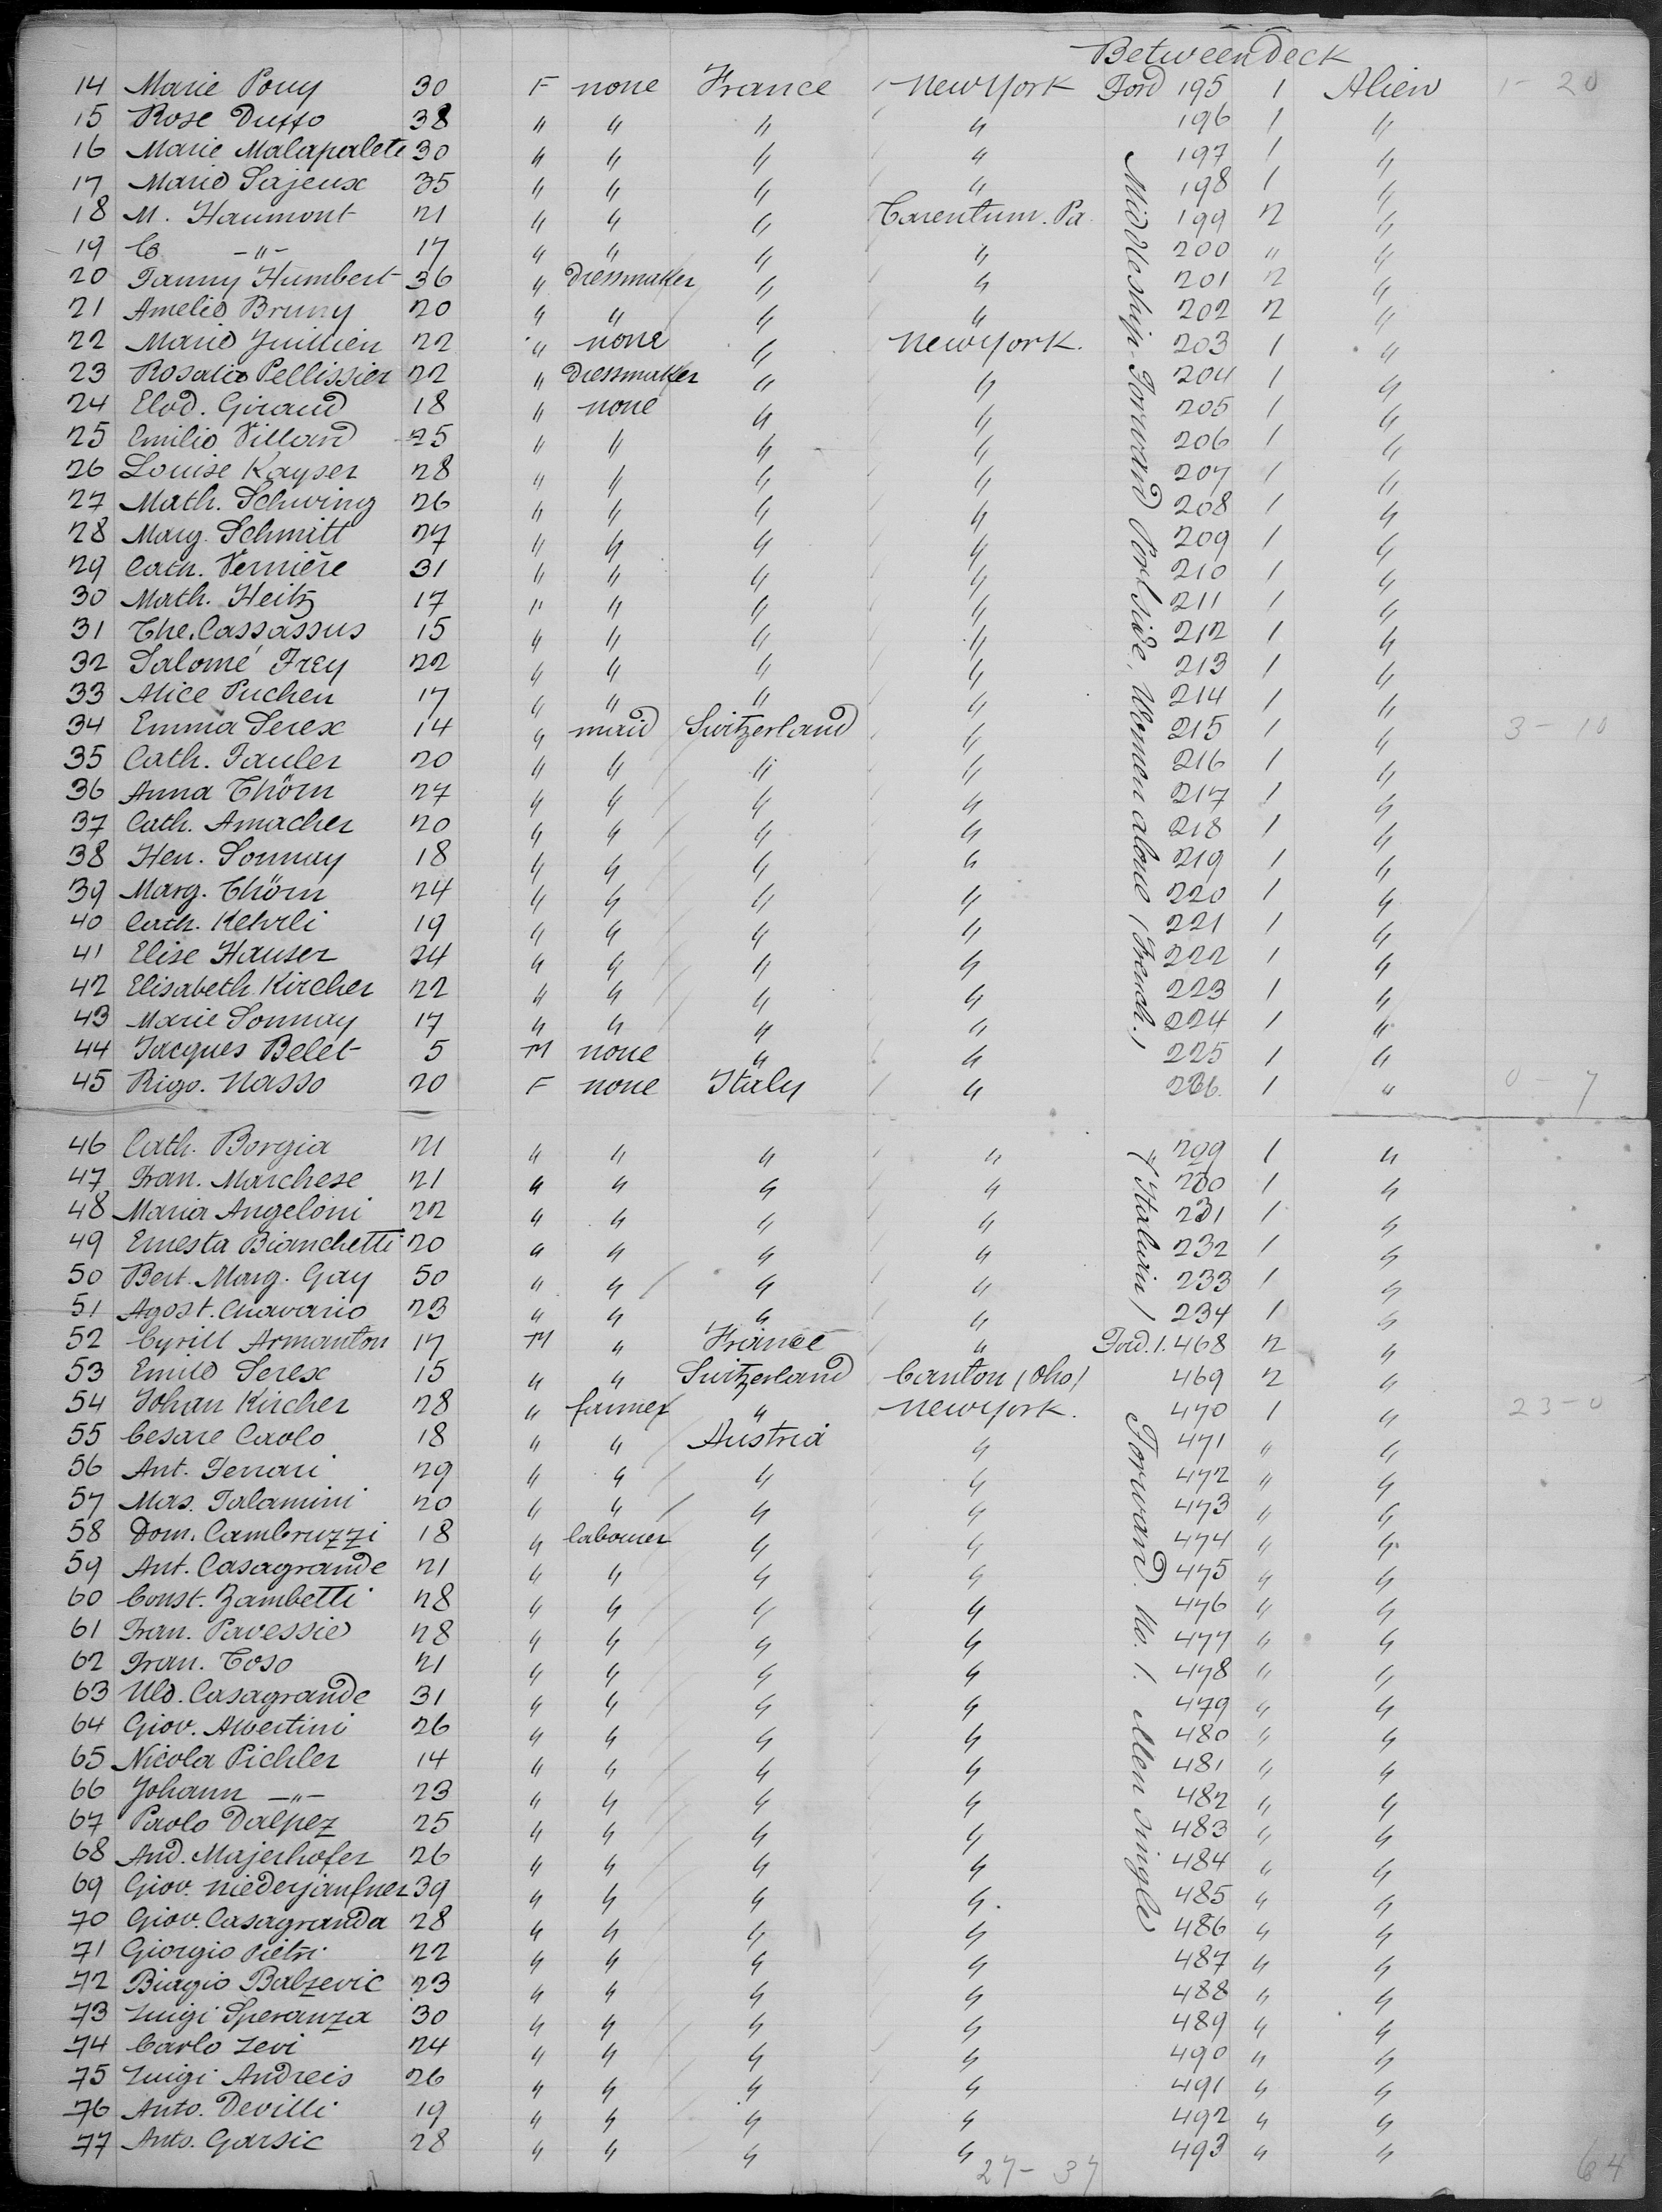 Between Deck
14 Marie Pouy 30 F none France New York Ford 195 1 Alien 1-20
15 Rose Duffo 38 " " " " 196 1 "
16 Marie Malapalete 30 " " " " 197 1 "
17 Marie Lajeux 35 " " " " 198 1 "
18 M. Haumont 21 " " " Tarentum. Pa 199 2 "
19 C -"- 17 " " " " 200 " "
20 Fanny Humbert 36 " dressmaker " " 201 2 "
21 Amelie Bruny 20 " " " " 202 2 "
22 Marie Juillien 22 " none " New York. 203 1 "
23 Rosalie Pellissier 22 " dressmaker " " 204 1 "
24 Elod. Giraud 18 " none " " 205 1 "
25 Emilie Villard 25 " " " " 206 1 "
26 Louise Kayser 28 " " " " 207 1 "
27 Math. Schwing 26 " " " " 208 1 "
28 Marg. Schmitt 27 " " " " 209 1 "
29 Cath. Vernière 31 " " " " 210 1 "
30 Math. Heitz 17 " " " " 211 1 "
31 The. Cassassus 15 " " " " 212 1 "
32 Salomé Frey 22 " " " " 213 1 "
33 Alice Pucheu 17 " " " " 214 1 "
34 Emma Serex 14 " maid Switzerland " 215 1 " 3-10
35 Cath. Fauler 20 " " " " 216 1 "
36 Anna Thörn 27 " " " " 217 1 "
37 Cath. Amacher 20 " " " " 218 1 "
38 Hen. Sonnay 18 " " " " 219 1 "
39 Marg. Thörn 24 " " " " 220 1 "
40 Cath. Kehrli 19 " " " " 221 1 "
41 Elise Hauser 24 " " " " 222 1 "
42 Elisabeth Kircher 22 " " " " 223 1 "
43 Marie Sonnay 17 " " " " 224 1 "
44 Jacques Belet 5 M none " " 225 1 "
45 Rigo. Nasso 20 F none Italy " 226. 1 " 0-7
Middleship-Forward Portside, Women alone (French.)
46 Cath. Borgia 21 " " " " 209 1 "
47 Fran. Marchese 21 " " " " 230 1 "
48 Maria Angeloni 22 " " " " 231 1 "
49 Ernesta Bianchetti 20 " " " " 232 1 "
50 Bert. Marg. Gay 50 " " " " 233 1 "
51 Agost. Chavario 23 " " " " 234 1 "
" (Italian)
52 Cyrill Armanton 17 M " France " Ford. 1. 468 2 "
53 Emile Serex 15 " " Switzerland Canton (Oho) 469 2 "
54 Johan Kircher 28 " farmer " New York. 470 1 " 23-0
55 Cesare Caolo 18 " " Austria " 471 " "
56 Ant. Ferrari 29 " " " " 472 " "
57 Mas. Talamini 20 " " " " 473 " "
58 Dom. Cambruzzi 18 " labourer " " 474 " "
59 Ant. Casagrande 21 " " " " 475 " "
60 Const. Zambetti 28 " " " " 476 " "
61 Fran. Pavessie 28 " " " " 477 " "
62 Fran. Toso 21 " " " " 478 " "
63 Uld. Casagrande 31 " " " " 479 " "
64 Giov. Albertini 26 " " " " 480 " "
65 Nicola Pichler 14 " " " " 481 " "
66 Johann -"- 23 " " " " 482 " "
67 Paolo Dalpez 25 " " " " 483 " "
68 And. Majerhofer 26 " " " " 484 " "
69 Giov. Niederjaufner 39 " " " " 485 " "
70 Giov. Casagranda 28 " " " " 486 " "
71 Giorgio Pietri 22 " " " " 487 " "
72 Biagio Balzevic 23 " " " " 488 " "
73 Luigi Speranza 30 " " " " 489 " "
74 Carlo Levi 24 " " " " 490 " "
75 Luigi Andreis 26 " " " " 491 " "
76 Anto. Devilli 19 " " " " 492 " "
77 Anto. Garsic 28 " " " " 493 " "
Forward. No. 1. Men single
27-37
64